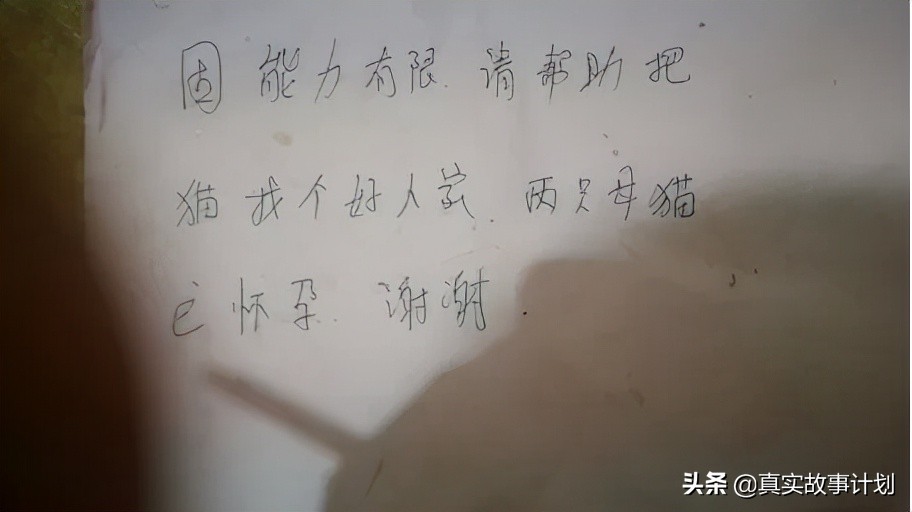 因能力有限.请帮助把
猫找个好人家.两只母猫
已怀孕.谢谢.
头条 @真实故事计划